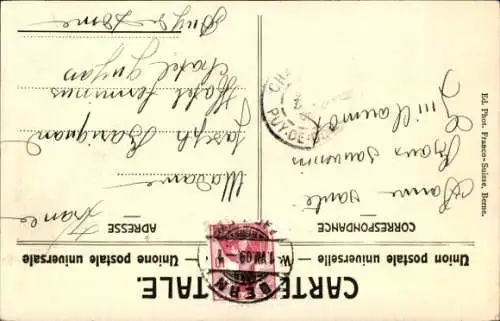 CARTE POSTALE.
Union postale universelle — Unione postale universale
CORRESPONDANCE
ADRESSE
Bonne santé
Bons souvenirs
Madame
Joseph
Hotel terminus
Chatel Guyon
Puy de Dome
France
BERN
1.VIII.09
PUY-DE-D
Ed. Phot. Franco-Suisse, Berne.